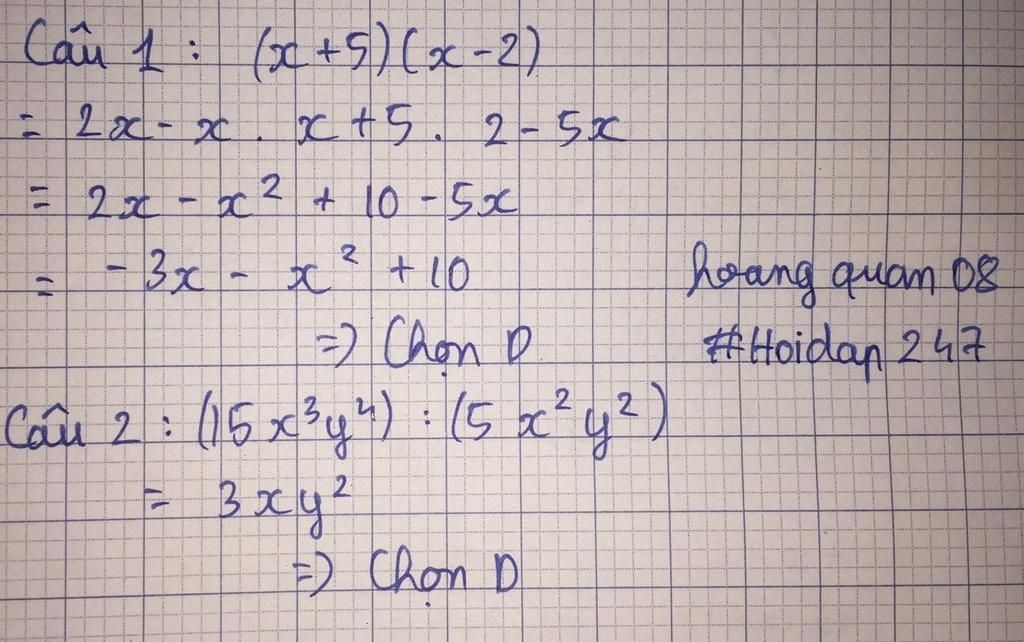 Câu 1 : (x+5)(x-2)
= 2x - x . x + 5 . 2 - 5x
= 2x - x² + 10 - 5x
= - 3x - x² + 10
=> Chọn D
hoang quan 08
#Hoidap 247
Câu 2 : (15x³y⁴) : (5x²y²)
= 3xy²
=> Chọn D